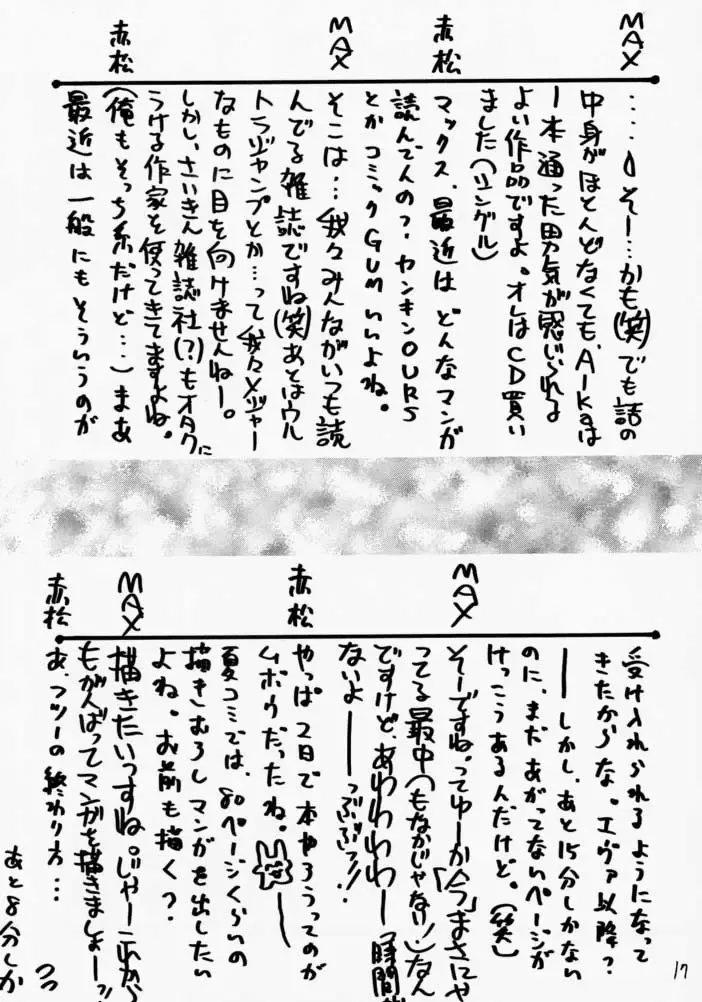 MAX
‥‥うそー…かも(笑)でも話の
中身がほとんどなくても、AIkaは
一本通った男気が感じられる
よい作品ですよ。オレはCD買い
ました(シングル)
赤松
マックス、最近はどんなマンガ
読んでんの?ヤンキンOURS
とかコミックGUMいいよね。
MAX
そこは…我々みんながいつも読
んでる雑誌ですね(笑)あとはウル
トラジャンプとか…って我々メジャー
なものに目を向けませんねー。
しかし、さいきん雑誌社(?)もオタクに
うける作家を使ってきてますよね。
赤松
(俺もそっち系だけど…)まあ
最近は一般にもそういうのが
受け入れられるようになって
きたからな。エヴァ以降?
──しかし、あと15分しかない
のに、まだあがってないページが
けっこうあるんだけど。(笑)
MAX
そーですね。ってゆーか「今」まさにや
ってる最中(もなかじゃない!)なん
ですけど、あわわわわー時間が
ないよ──っぶぶっ!!
赤松
やっぱ2日で本やろうってのが
ムボウだったね。
夏コミでは、80ページくらいの
描きむろしマンガを出したい
よね。お前も描く?
MAX
描きたいっすね。じゃーこれから
もがんばってマンガを描きましょーっ!!
赤松
あ、フツーの終わり方…
あと8分しか
17